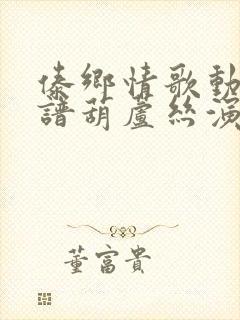 傣鄉情歌動
譜葫蘆絲演
董富貴